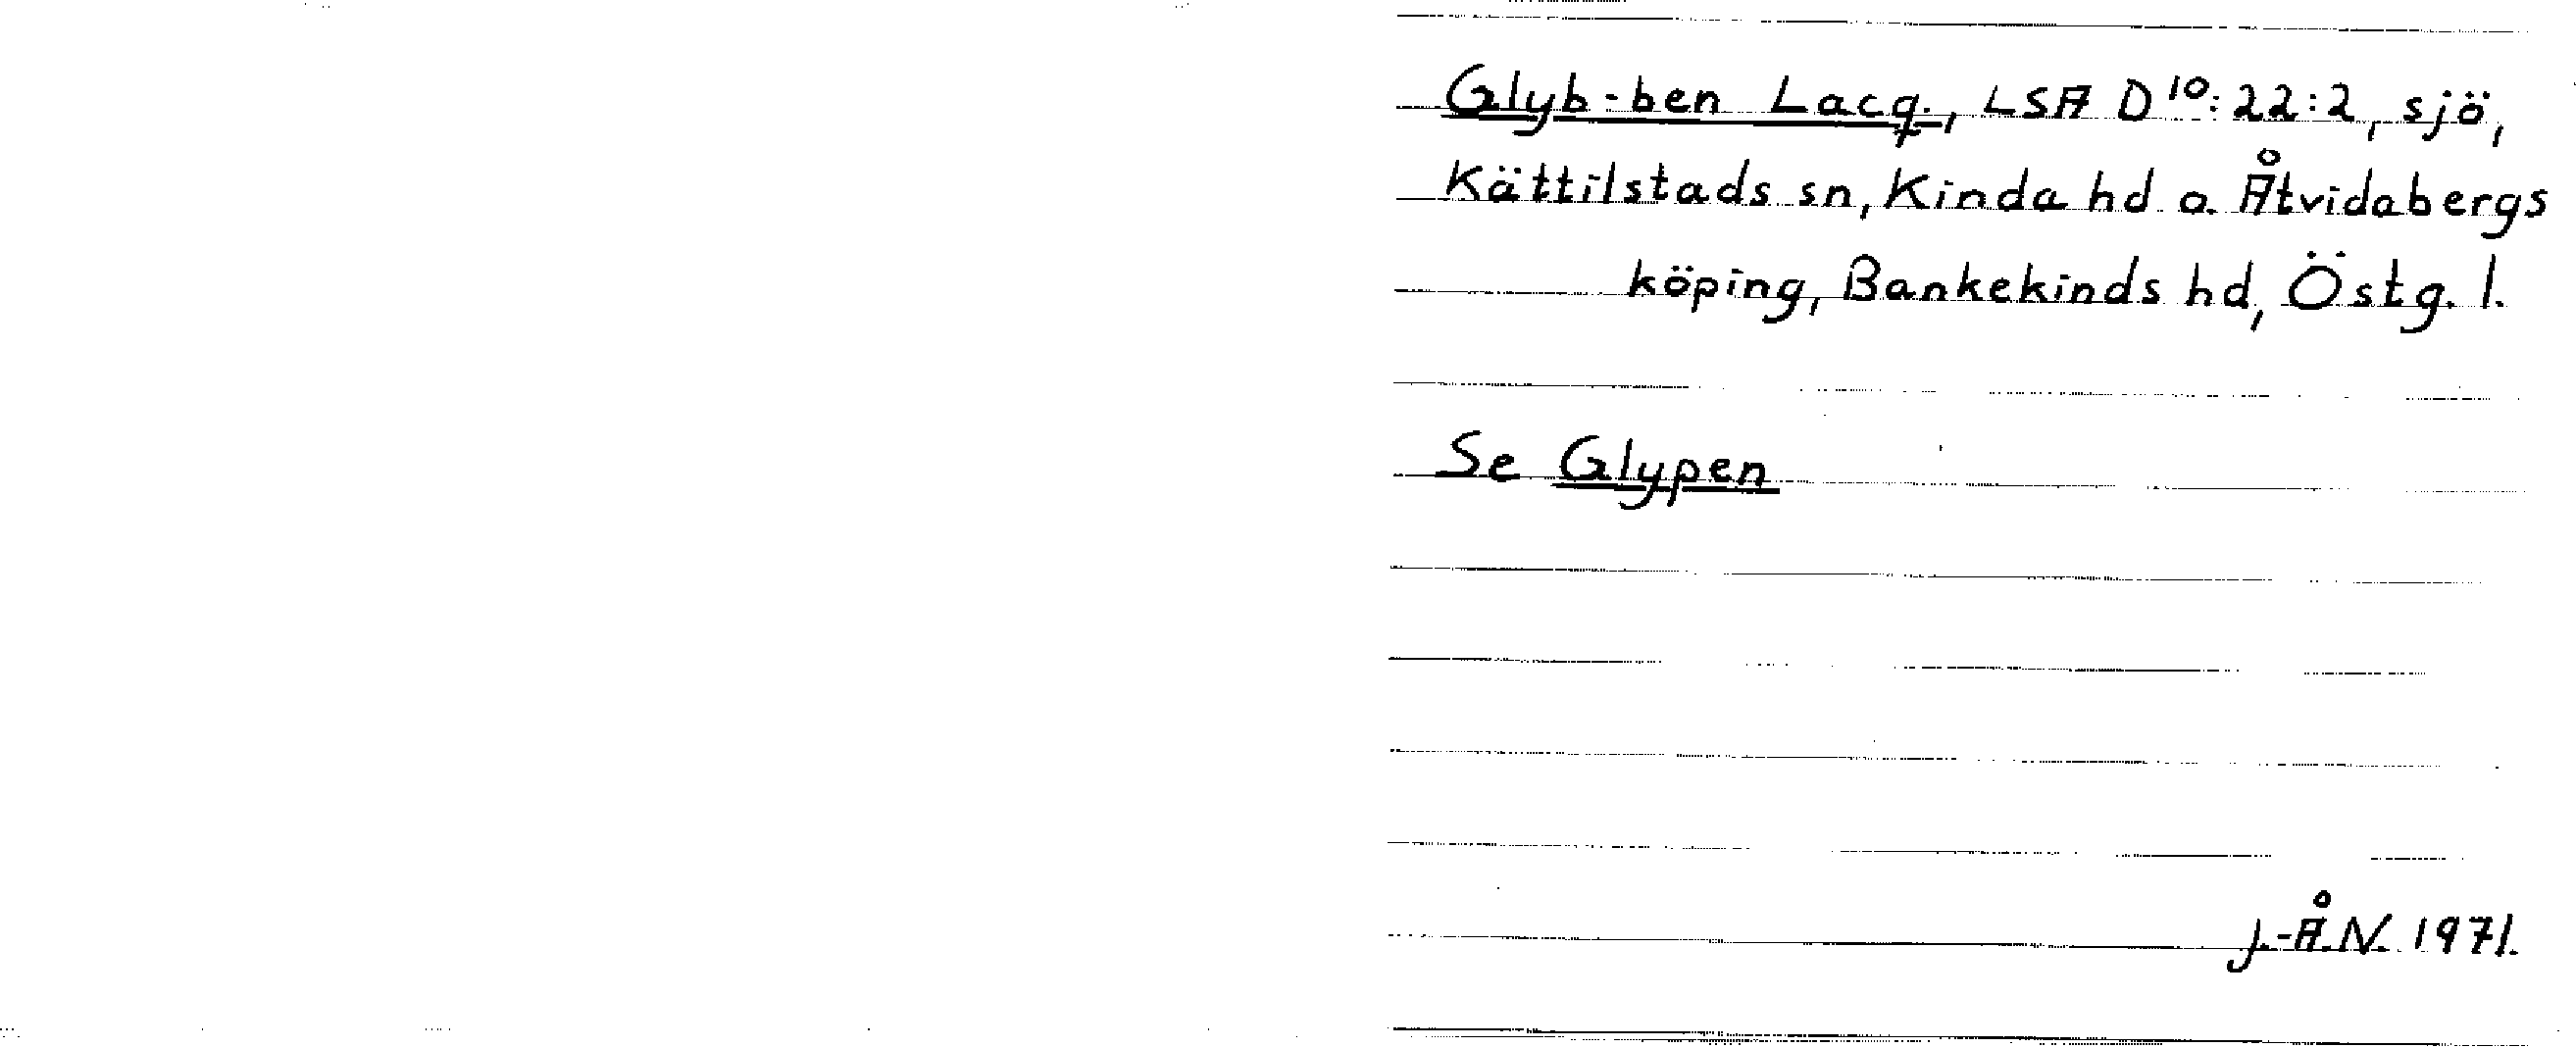 Glyb-ben Lacq., LSA D10:22:2, sjö,
Kättilstads sn, Kinda hd o. Åtvidabergs
köping, Bankekinds hd, Östg. l.
Se Glypen
J.-Å.N. 1971.